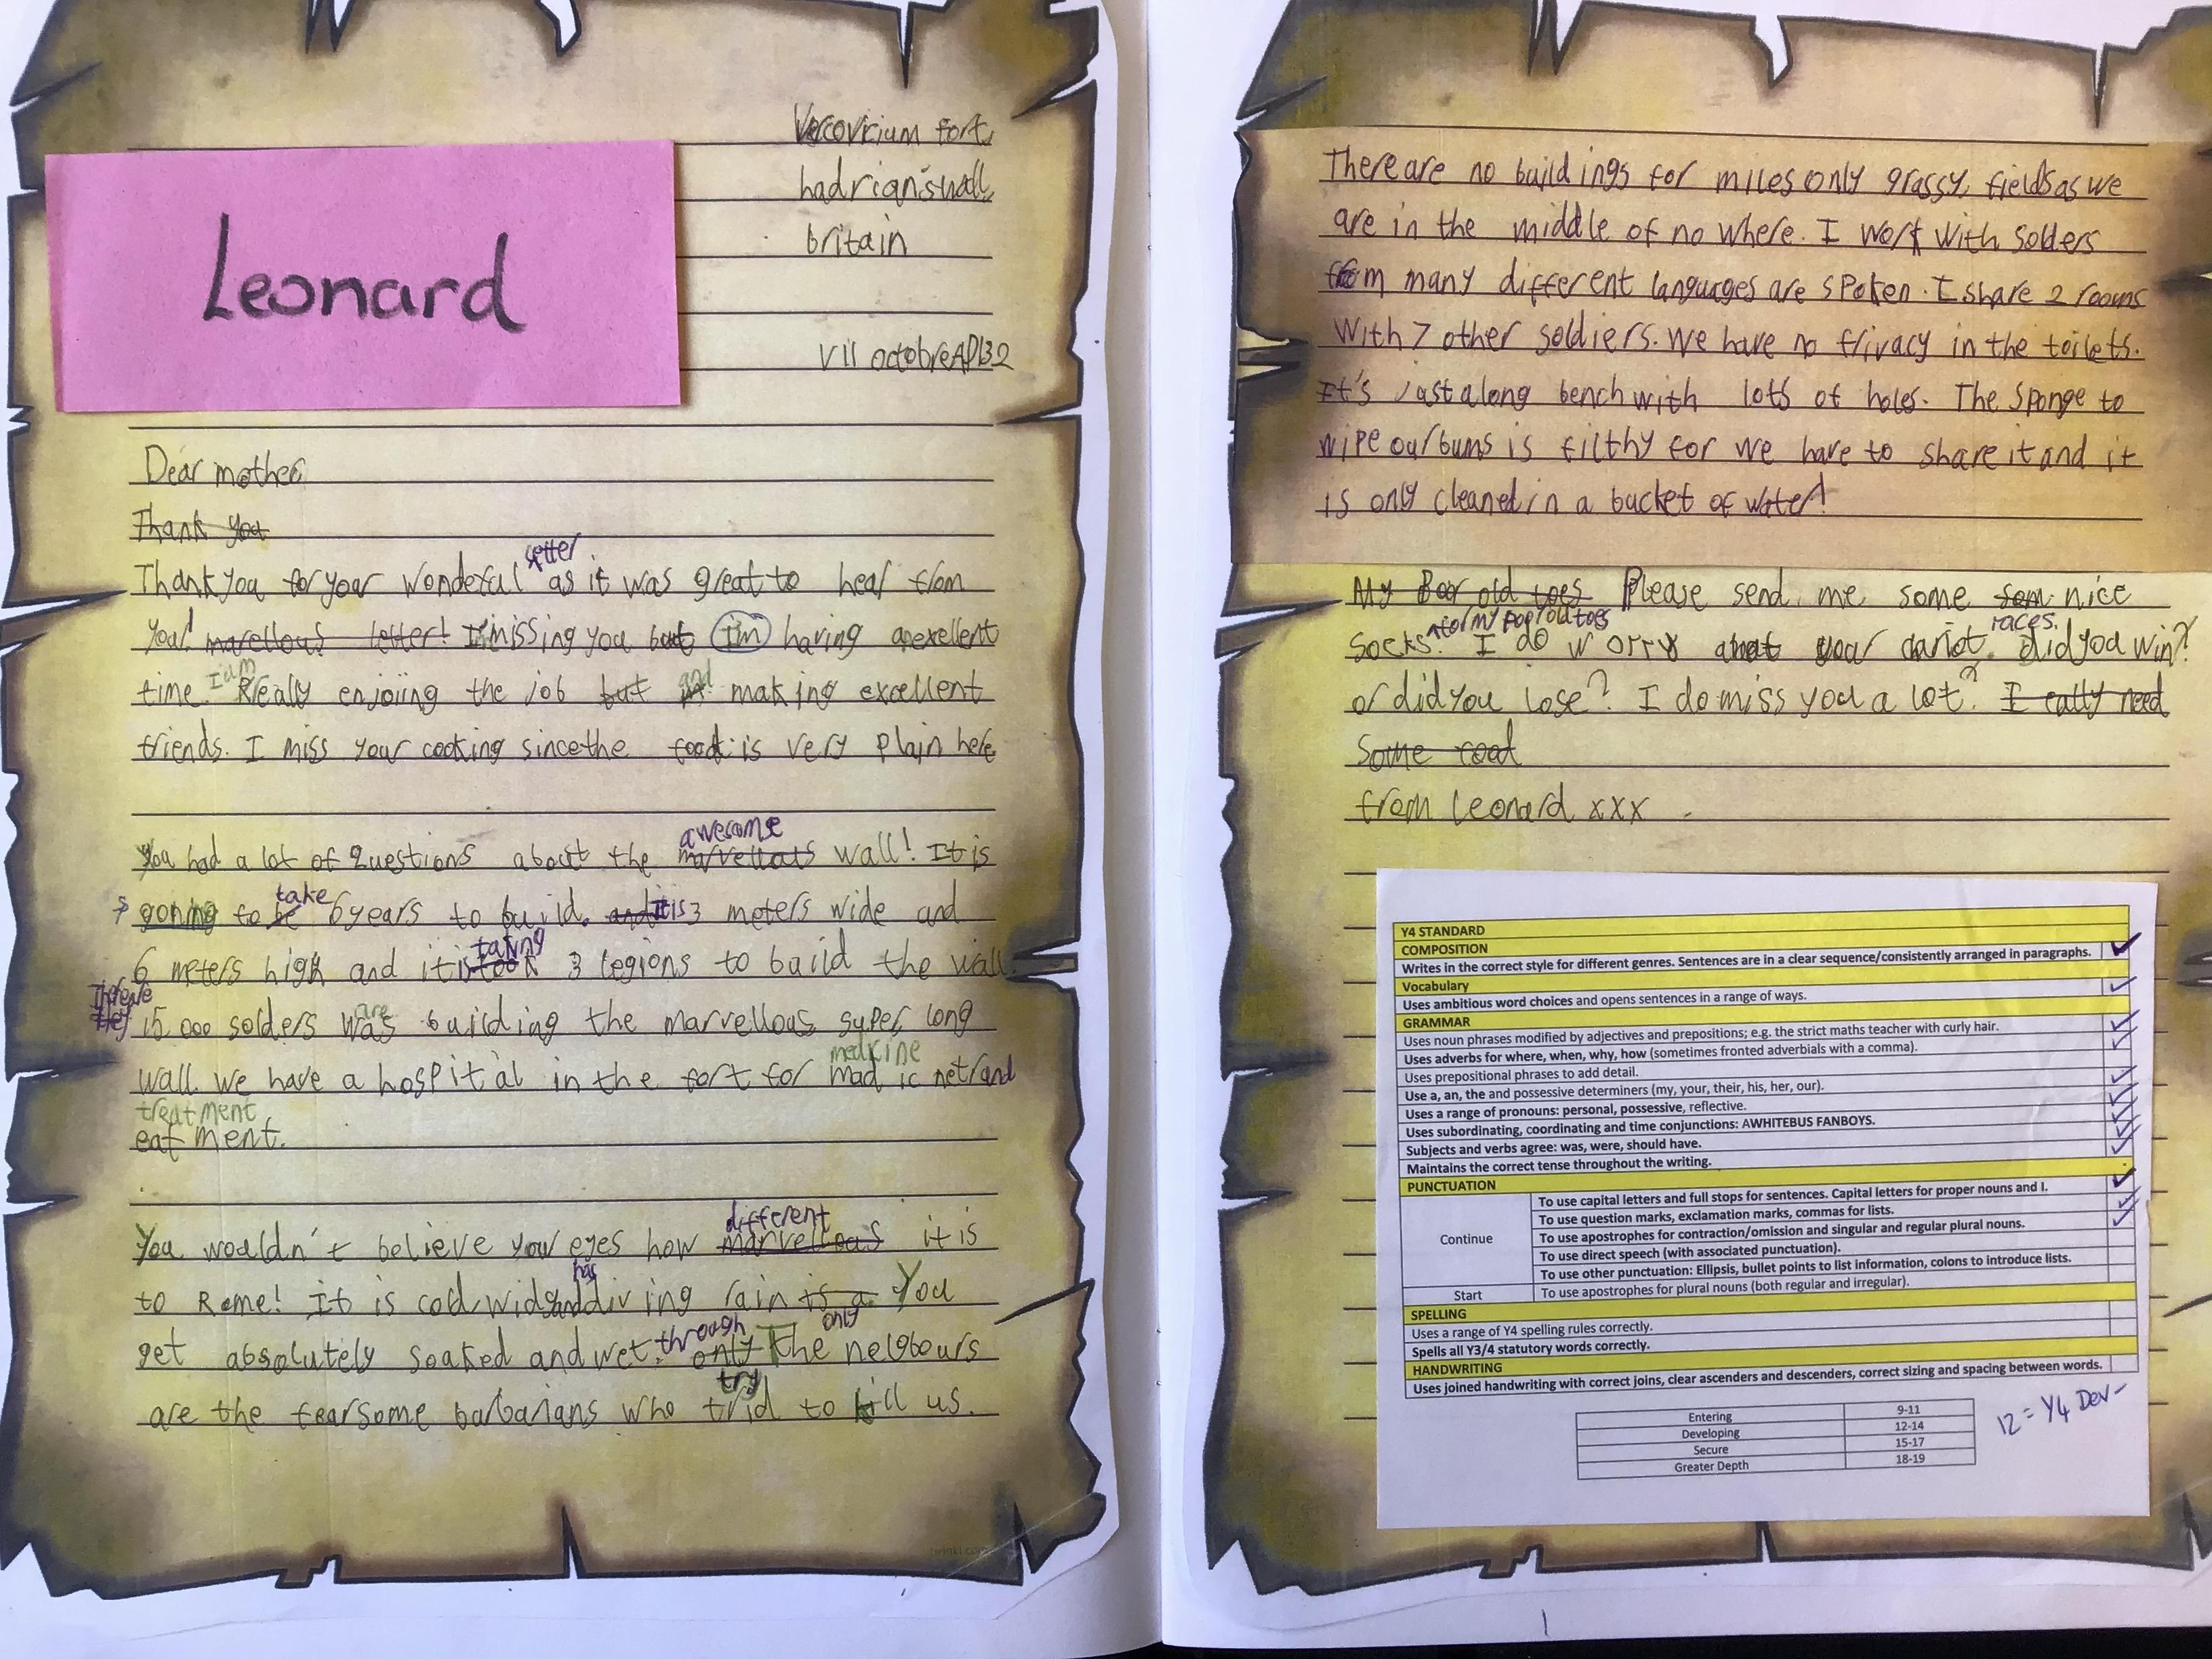 Vercovicium fort,
hadrian'swall,
britain
Leonard
VII octobreAD132
Dear mother,
Thank you
letter
Thank you for your wonderful as it was great to hear from
you! marellous letter! I'm missing you but I'm having anexellent
I am and
time. Really enjoiing the job but making excellent
friends. I miss your cooking sincethe food is very plain here
awesome
You had a lot of questions about the marvellous wall! It is
take
going to be 6years to build. and it is 3 meters wide and
taking
6 meters high and it is took 3 legions to build the wall.
There are
they 15,000 solders was building the marvellous super long
are
medicine
wall. We have a hospital in the fort for mad ic netrand
treatment
eatment.
different
You wouldn't believe your eyes how marvellous it is
has
to Rome! It is cold, widanddiving rain is a You
through only
get absolutely soaked and wet. only The neigbours
try
are the fearsome barbarians who trid to kill us.
There are no buildings for miles only grassy fieldsas we
are in the middle of no where. I work with solders
from many different languages are spoken. I share 2 rooms
With 7 other soldiers. We have no privacy in the toilets.
It's just along bench with lots of holes. The sponge to
wipe ourbums is filthy for we have to share it and it
is only cleaned in a bucket of water!
My old toes Please send me some som nice
for my poor old toes races.
socks. I do worry your cariot. did you win?
or did you lose? I do miss you a lot? I eally need
Some
from Leonard xxx
Y4 STANDARD
COMPOSITION
Writes in the correct style for different genres. Sentences are in a clear sequence/consistently arranged in paragraphs.
Vocabulary
Uses ambitious word choices and opens sentences in a range of ways.
GRAMMAR
Uses noun phrases modified by adjectives and prepositions; e.g. the strict maths teacher with curly hair.
Uses adverbs for where, when, why, how (sometimes fronted adverbials with a comma).
Uses prepositional phrases to add detail.
Use a, an, the and possessive determiners (my, your, their, his, her, our).
Uses a range of pronouns: personal, possessive, reflective.
Uses subordinating, coordinating and time conjunctions: AWHITEBUS FANBOYS.
Subjects and verbs agree: was, were, should have.
Maintains the correct tense throughout the writing.
PUNCTUATION
Continue
To use capital letters and full stops for sentences. Capital letters for proper nouns and I.
To use question marks, exclamation marks, commas for lists.
To use apostrophes for contraction/omission and singular and regular plural nouns.
To use direct speech (with associated punctuation).
To use other punctuation: Ellipsis, bullet points to list information, colons to introduce lists.
Start To use apostrophes for plural nouns (both regular and irregular).
SPELLING
Uses a range of Y4 spelling rules correctly.
Spells all Y3/4 statutory words correctly.
HANDWRITING
Uses joined handwriting with correct joins, clear ascenders and descenders, correct sizing and spacing between words.
Entering 9-11
Developing 12-14
Secure 15-17
Greater Depth 18-19
12 = Y4 Dev-